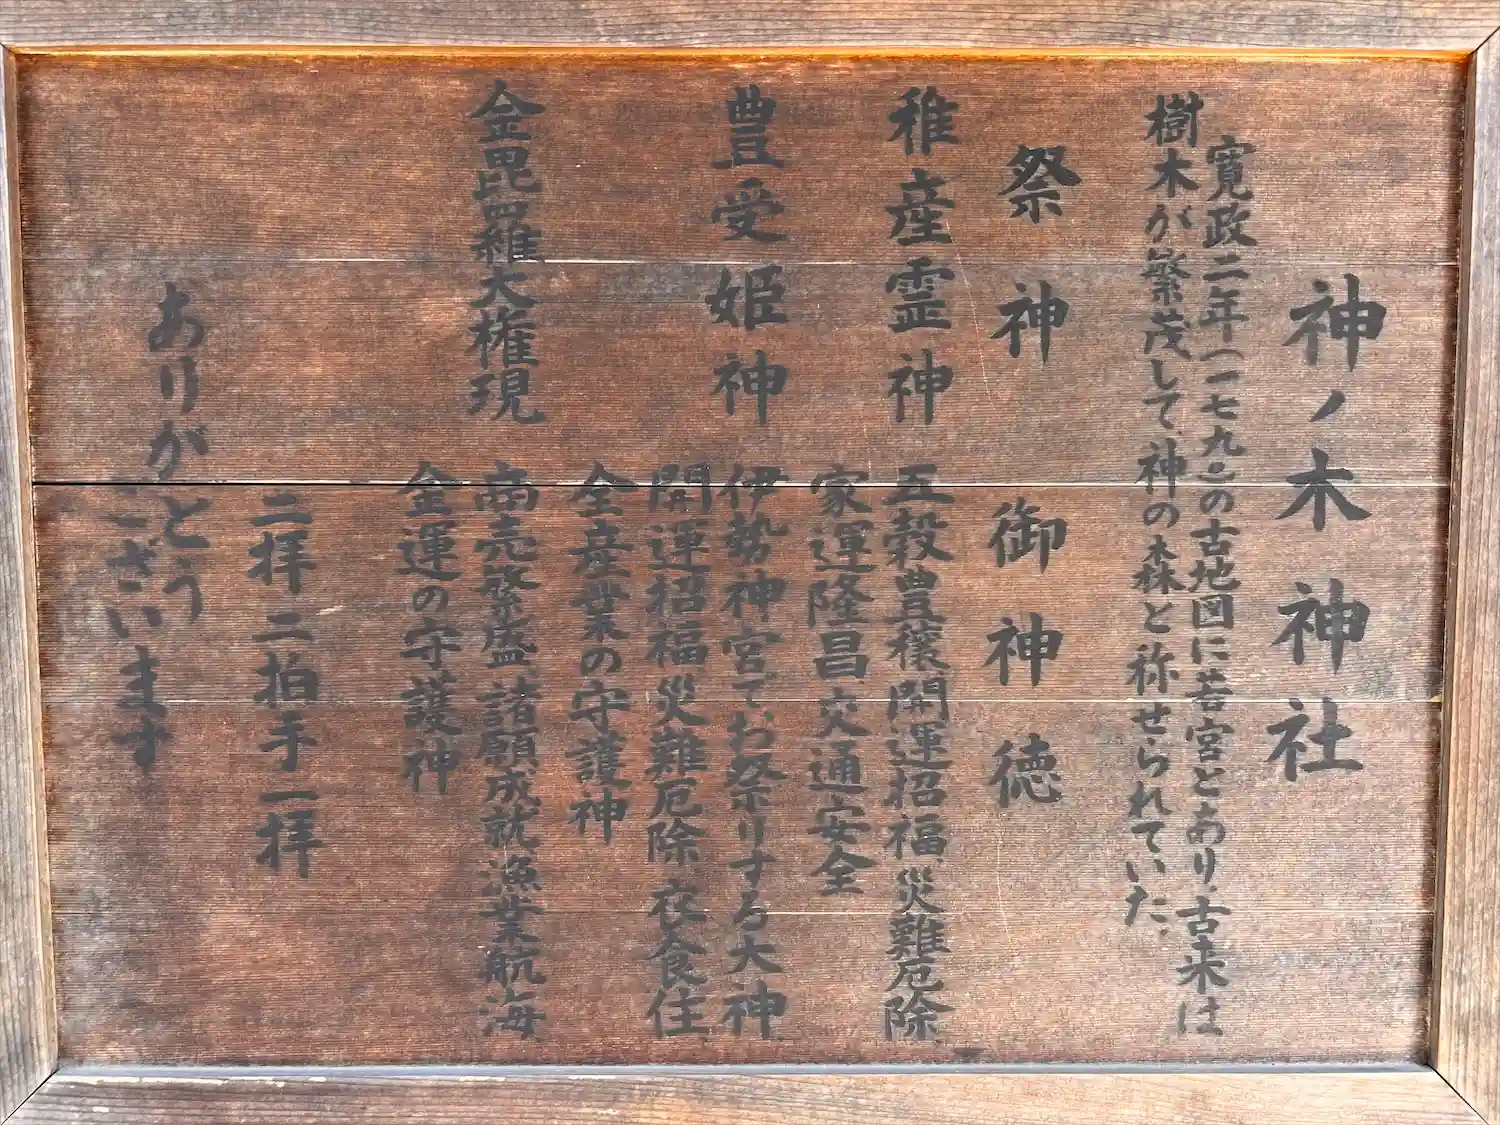 神ノ木神社
寛政二年(一七九〇)の古地図に若宮とあり、古来は
樹木が繁茂して、神の森と祢せられていた。
祭神 御神徳
稚産霊神 五穀豊穣、開運招福、災難厄除
家運隆昌、交通安全
豊受姫神 伊勢神宮でお祭りする大神
開運招福、災難厄除、衣食住
全産業の守護神
金毘羅大権現 商売繁盛、諸願成就、漁業航海
金運の守護神
二拝二拍手一拝
ありがとう
ございます